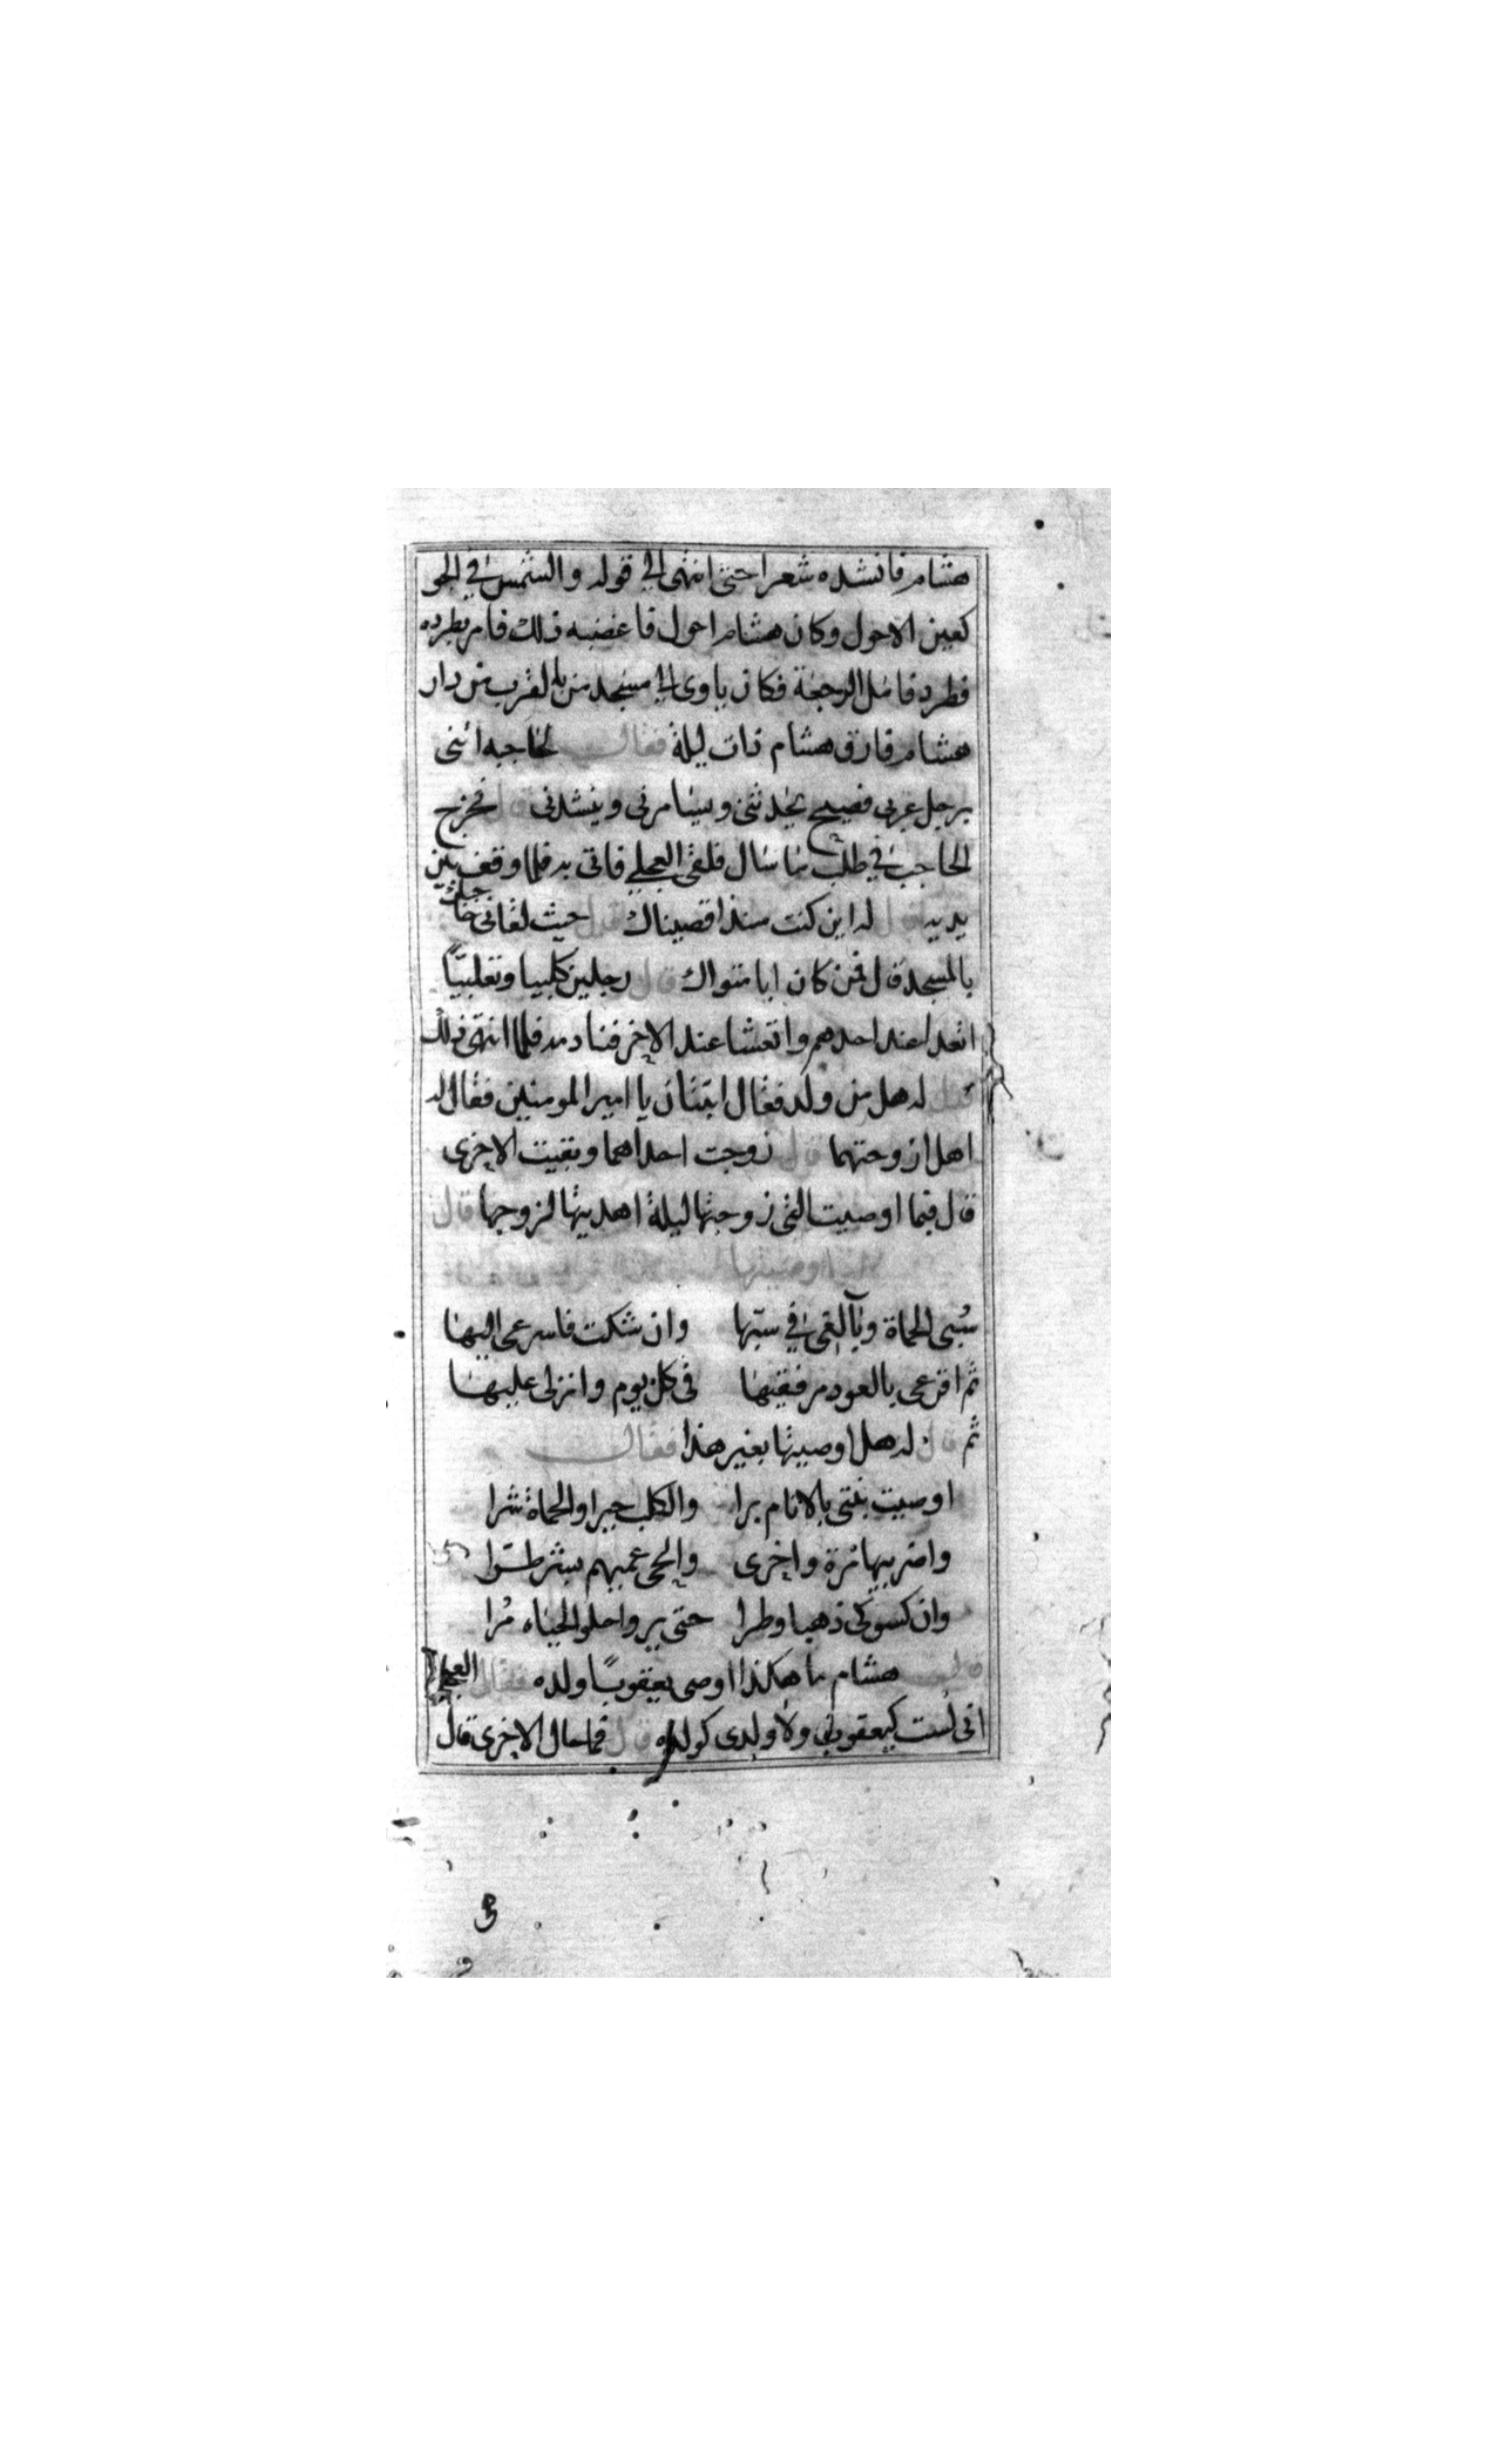 هشام فانشده شعرا حتى انتهى الى قوله والشمس في الجو
كعين الاحول وكان هشام احول فاغضبه ذلك فامر بطرده
فطرد فامل الرجعة فكان ياوى الى مسجد من بالقرب من دار
هشام فارق هشام ذات ليلة فقال لحاجبه ائتنى
برجل عربى فصيح يحدثنى ويسامرنى وينشدنى قال فخرج
الحاجب في طلب ما سال فلقى العجلي فاتى به فلما وقف بين
يديه قال له اين كنت منذ اقصيناك قال حيث لقانى حاجبك
بالمسجد قال فمن كان ابا مثواك قال رجلين كلبيا وتغلبيّا
اتغدا عند احدهم واتعشا عند الاخر فنادمه فلما انتهى ذلك
قال له هل من ولد فقال ابنتان يا امير المومنين فقال له
اهل ازوجتهما قال زوجت احداهما وبقيت الاخرى
قال فبما اوصيت التى زوجتها ليلة اهديتها لزوجها قال
اوصيتها
سُبى الحماة وبالغى في سبّها وان شكت فاسرعى اليها
ثم اقرعى بالعود مرفقيها في كل يوم وانزلى عليها
ثم قال له هل اوصيتها بغير هذا فقال
اوصيت بنتى بالانام برا والكلب خيرا والحماة شرا
واضربيها مرة واخرى والحى عميهم بشر طرّا
وان كسوكى ذهبا وطرا حتى يروا حلو الحياه مُرا
قال هشام ما هكذا اوصى يعقوب ولده فقال العجلي
انى لست كيعقوب ولا ولدى كولده قال فما حال الاخرى قال